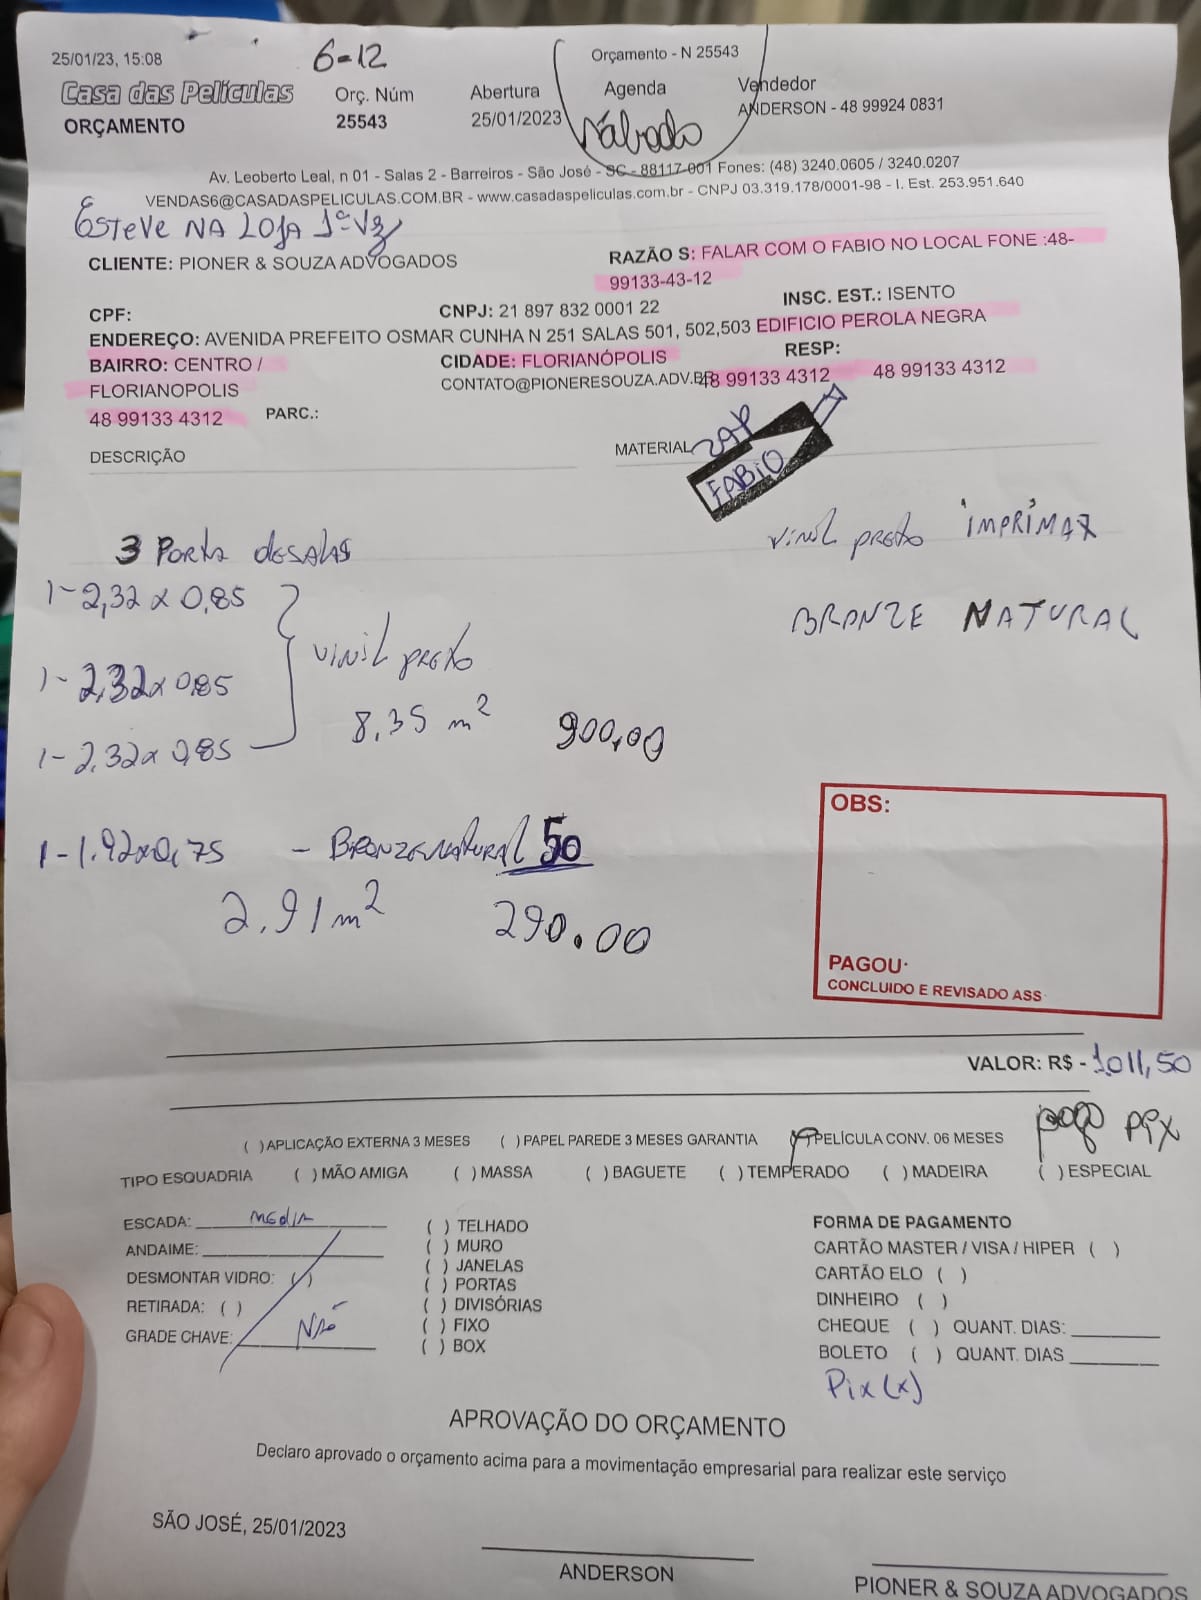 25/01/23, 15:08
6-12
Orçamento - N 25543
Casa das Películas
Orç. Núm
Abertura
Agenda
Vendedor
ORÇAMENTO
25543
25/01/2023
Sábado
ANDERSON - 48 99924 0831
Av. Leoberto Leal, n 01 - Salas 2 - Barreiros - São José - SC - 88117-001 Fones: (48) 3240.0605 / 3240.0207
VENDAS6@CASADASPELICULAS.COM.BR - www.casadaspeliculas.com.br - CNPJ 03.319.178/0001-98 - I. Est. 253.951.640
ESTEVE NA LOJA 1ª Vz
CLIENTE: PIONER & SOUZA ADVOGADOS
RAZÃO S: FALAR COM O FABIO NO LOCAL FONE :48-
99133-43-12
CPF:
CNPJ: 21 897 832 0001 22
INSC. EST.: ISENTO
ENDEREÇO: AVENIDA PREFEITO OSMAR CUNHA N 251 SALAS 501, 502,503 EDIFICIO PEROLA NEGRA
BAIRRO: CENTRO /
CIDADE: FLORIANÓPOLIS
RESP:
FLORIANOPOLIS
CONTATO@PIONERESOUZA.ADV.BR
48 99133 4312
48 99133 4312
48 99133 4312
PARC.:
DESCRIÇÃO
MATERIAL
FABIO
3 Porta de salas
vinil preto IMPRIMAX
1-2,32 x 0,85
BRONZE NATURAL
1-2,32 x 0,85
vinil preto
1-2,32 x 0,85
8,35 m²
900,00
OBS:
1-1.92x0,75 - BRONZE NATURAL 50
2.91 m²
290.00
PAGOU·
CONCLUIDO E REVISADO ASS
VALOR: R$ - 1011,50
pago Pix
( ) APLICAÇÃO EXTERNA 3 MESES ( ) PAPEL PAREDE 3 MESES GARANTIA PELÍCULA CONV. 06 MESES
TIPO ESQUADRIA ( ) MÃO AMIGA ( ) MASSA ( ) BAGUETE ( ) TEMPERADO ( ) MADEIRA ( ) ESPECIAL
ESCADA: MEDIA
( ) TELHADO
FORMA DE PAGAMENTO
ANDAIME:
( ) MURO
CARTÃO MASTER / VISA / HIPER ( )
DESMONTAR VIDRO: ( )
( ) JANELAS
CARTÃO ELO ( )
( ) PORTAS
RETIRADA: ( )
( ) DIVISÓRIAS
DINHEIRO ( )
GRADE CHAVE: NÃO
( ) FIXO
CHEQUE ( ) QUANT. DIAS:
( ) BOX
BOLETO ( ) QUANT. DIAS
Pix (x)
APROVAÇÃO DO ORÇAMENTO
Declaro aprovado o orçamento acima para a movimentação empresarial para realizar este serviço
SÃO JOSÉ, 25/01/2023
ANDERSON
PIONER & SOUZA ADVOGADOS